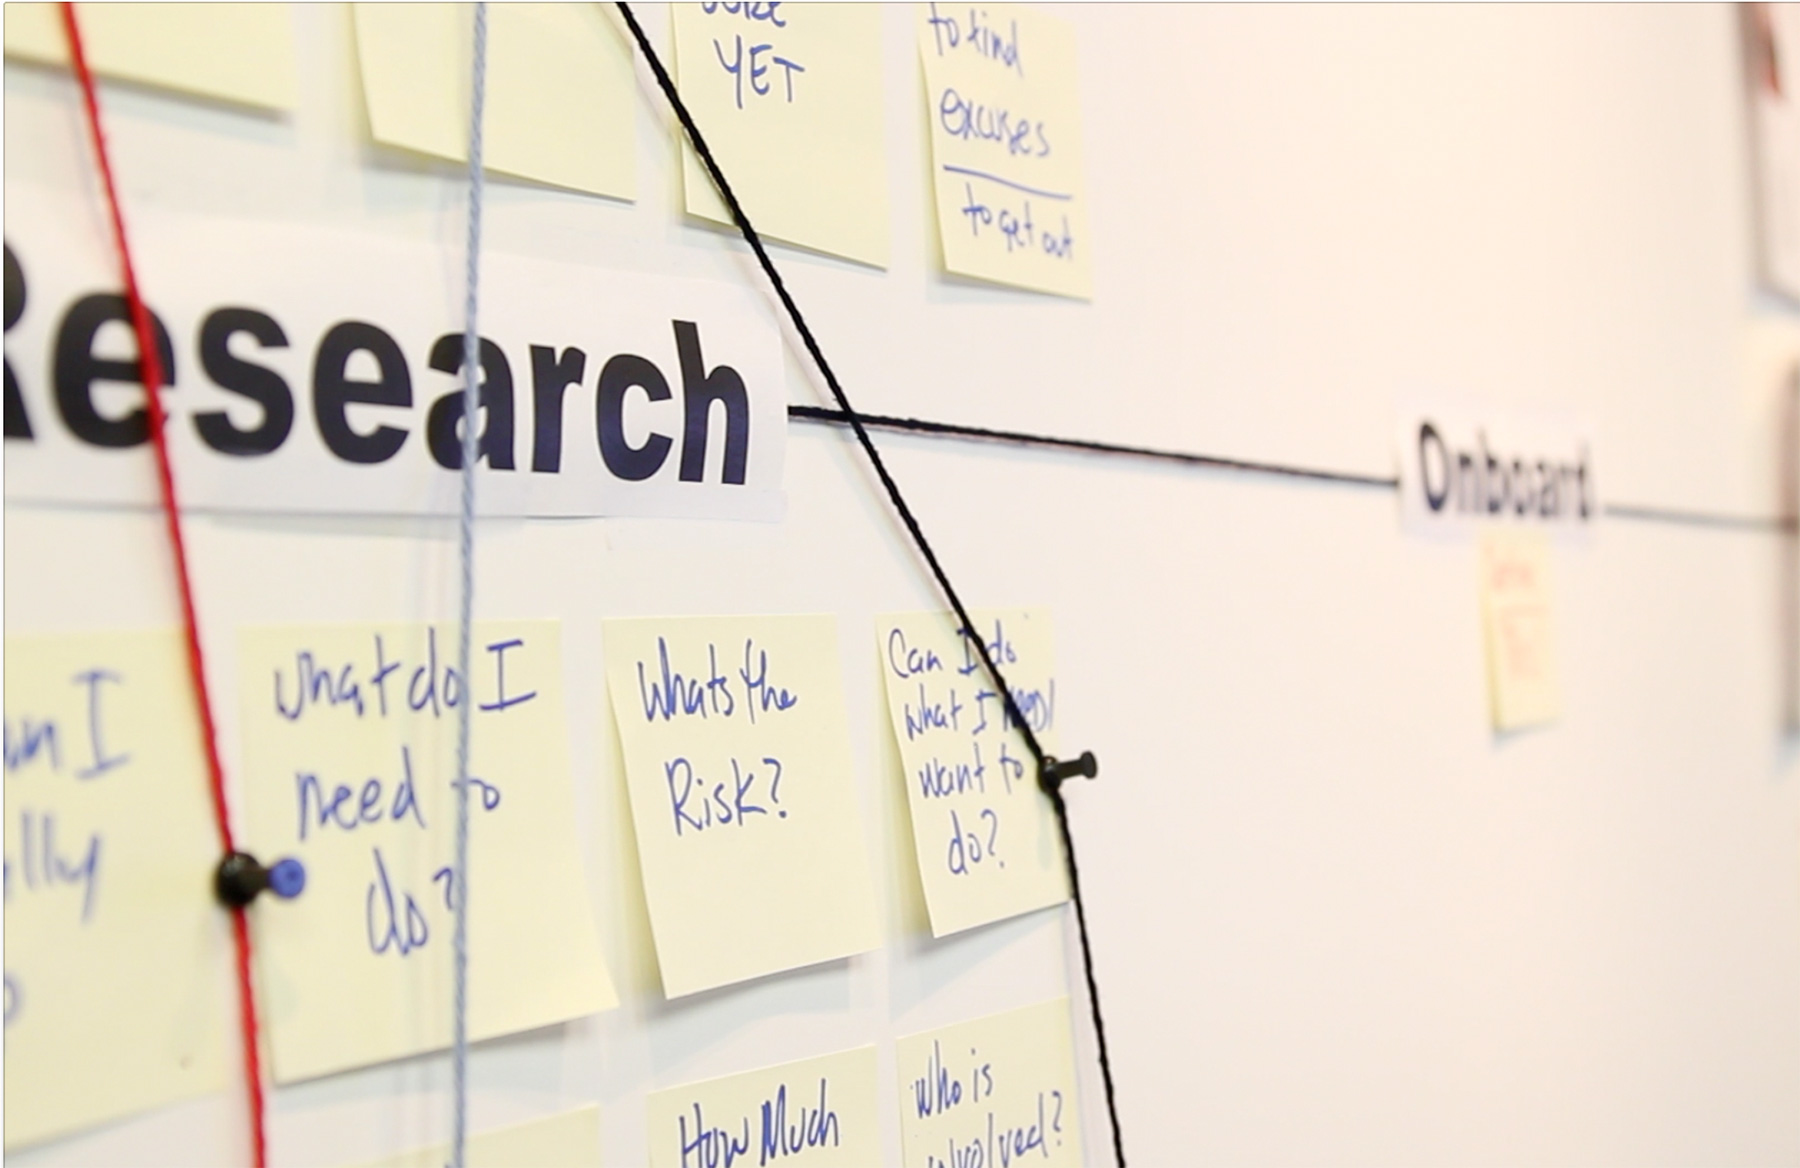 YET
to find
excuses
to get out
Research
Onboard
what do I
need to
do?
Whats the
Risk?
Can I do
what I need/
want to
do?
I
How Much
Who is
involved?